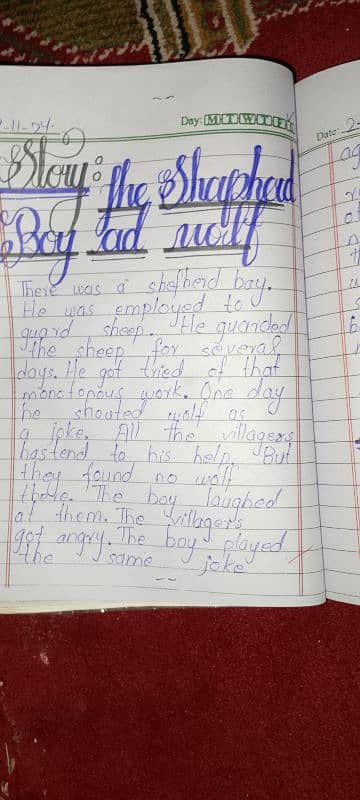 -11-24
Day: M T W T F
Date: 2-
Story: the Shaphead
Boy ad wolf
There was a shefherd boy.
He was employed to
guard sheep. He guarded
the sheep for several
days. He got tried of that
monotonous work. One day
he shouted wolf as
a joke. All the villagers
hastend to his help. But
they found no wolf
there. The boy laughed
at them. The villagers
got angry. The boy played
the same joke